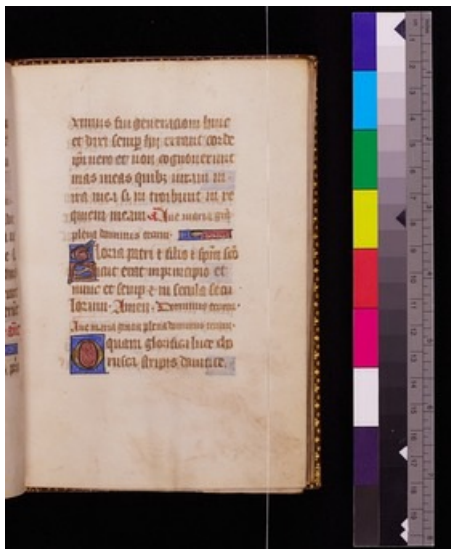 ximus fui generationi huic
et dixi semp hii errant corde
ipi uero et non cognouerunt
uias meas quibz iuraui in
ira mea si in troibunt in re
quiem meam. Aue maria gra
plena dominus tecum.
Gloria patri et filio et spiritui sco
Sicut erat in principio et
nunc et semp et in secula secu
lorum. Amen. Dominus tecum.
Aue maria gratia plena dominus tecum.
O quam glorifica luce cho
rusca stirpis dauitice.